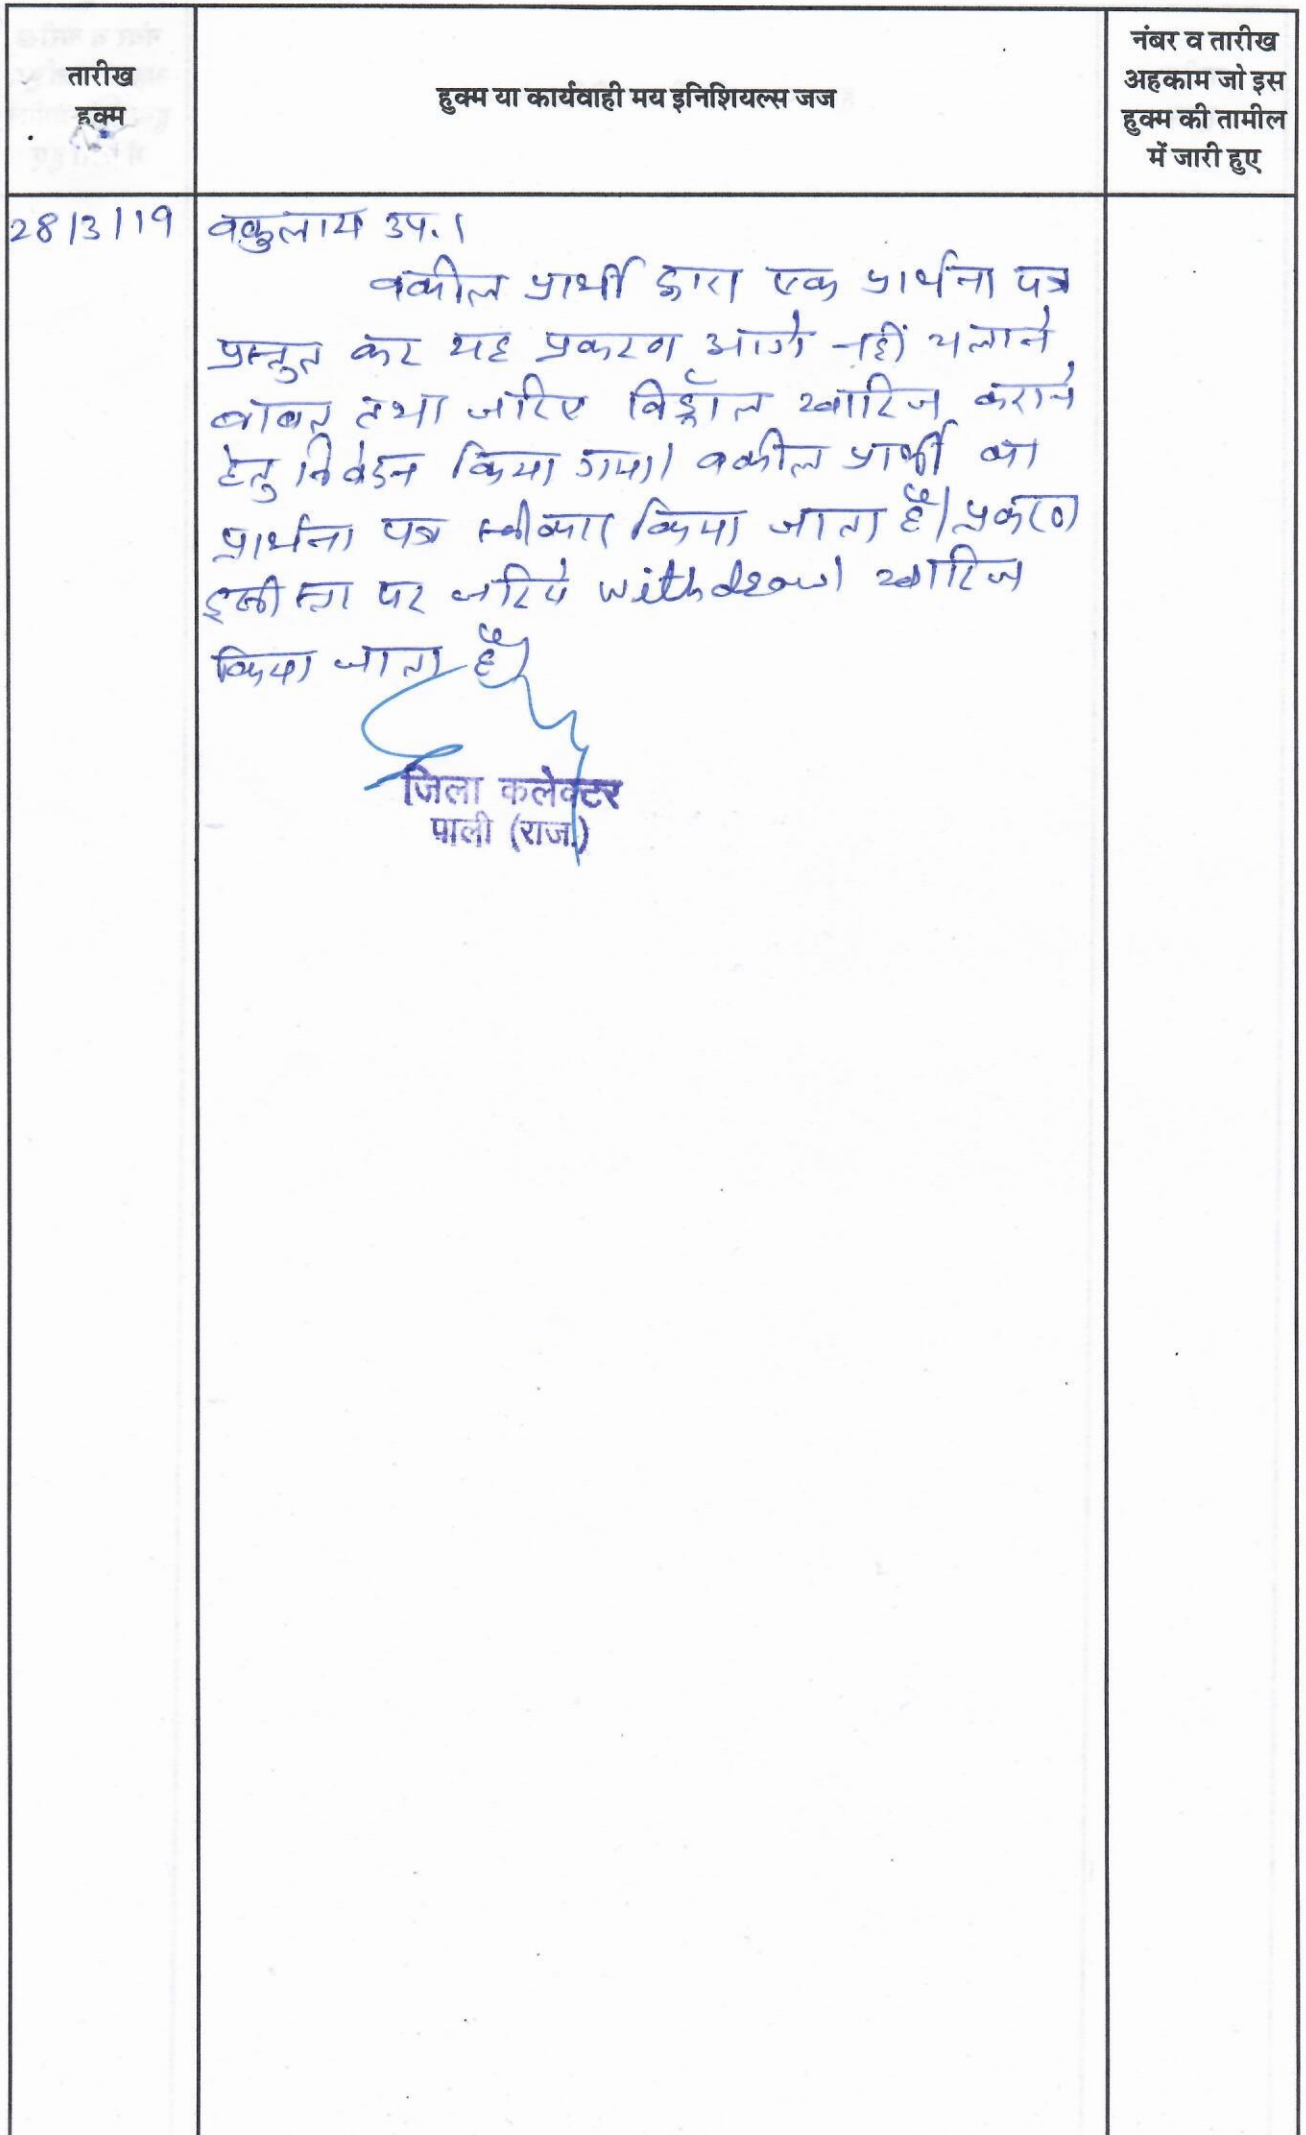 तारीख
हुक्म
हुक्म या कार्यवाही मय इनिशियल्स जज
नंबर व तारीख
अहकाम जो इस
हुक्म की तामील
में जारी हुए
28/3/19
वकुलाय उप.।
वकील प्रार्थी द्वारा एक प्रार्थना पत्र
प्रस्तुत कर यह प्रकरण आगे नहीं चलाने
बाबत तथा जरिए विड्रॉल खारिज कराने
हेतु निवेदन किया गया। वकील प्रार्थी का
प्रार्थना पत्र स्वीकार किया जाता है। प्रकरण
इसी स्तर पर जरिये withdrawl खारिज
किया जाता है।
जिला कलेक्टर
पाली (राज.)